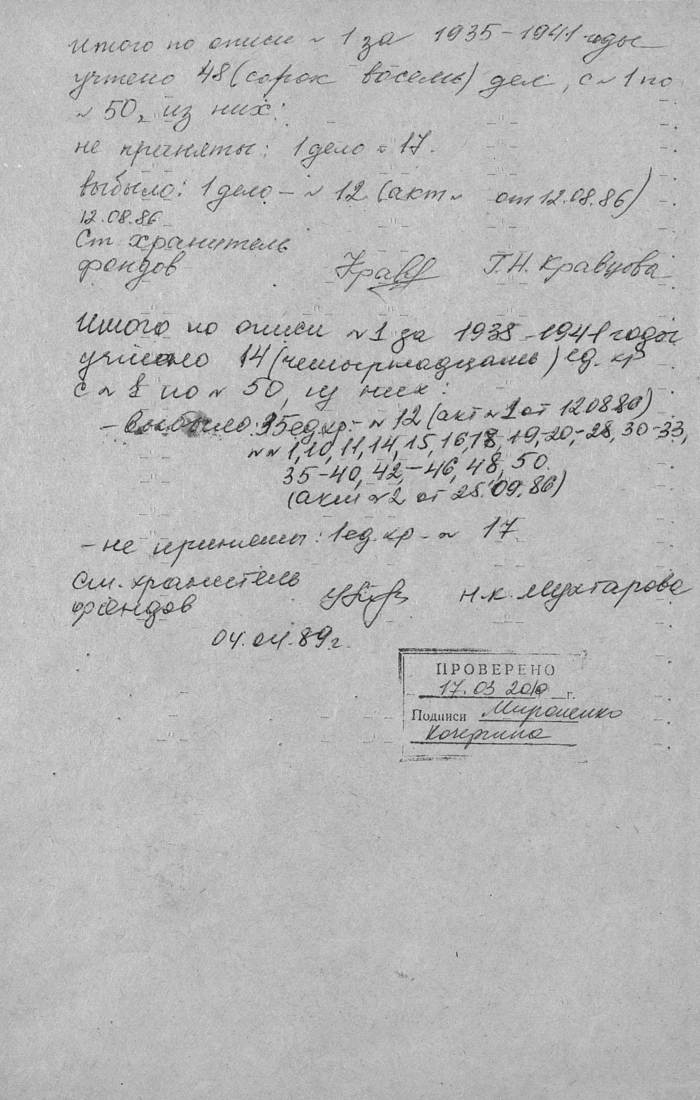 Итого по описи № 1 за 1935-1941 годы
учтено 48 (сорок восемь) дел, с № 1 по
№ 50, из них:
не приняты: 1 дело = 17.
выбыло: 1 дело - № 12 (акт № от 12.08.86)
12.08.86
Ст хранитель
фондов Г.Н. Кравцова
Итого по описи № 1 за 1938-1941 годы
учтено 14 (четырнадцать) ед. хр
с № 2 по № 50, из них:
- выбыло: 35 ед. хр. - № 12 (акт № 1 от 120886)
№№ 1, 10, 11, 14, 15, 16, 18, 19, 20,-28, 30-33,
35-40, 42,-46, 48, 50.
(акт № 2 от 25.09.86)
- не приняты: 1 ед. хр - № 17
Ст. хранитель
фондов Н.К. Мухтарова
04.04.89 г.
ПРОВЕРЕНО
17.03 2010 г.
Подписи Мироненко
Кочергина